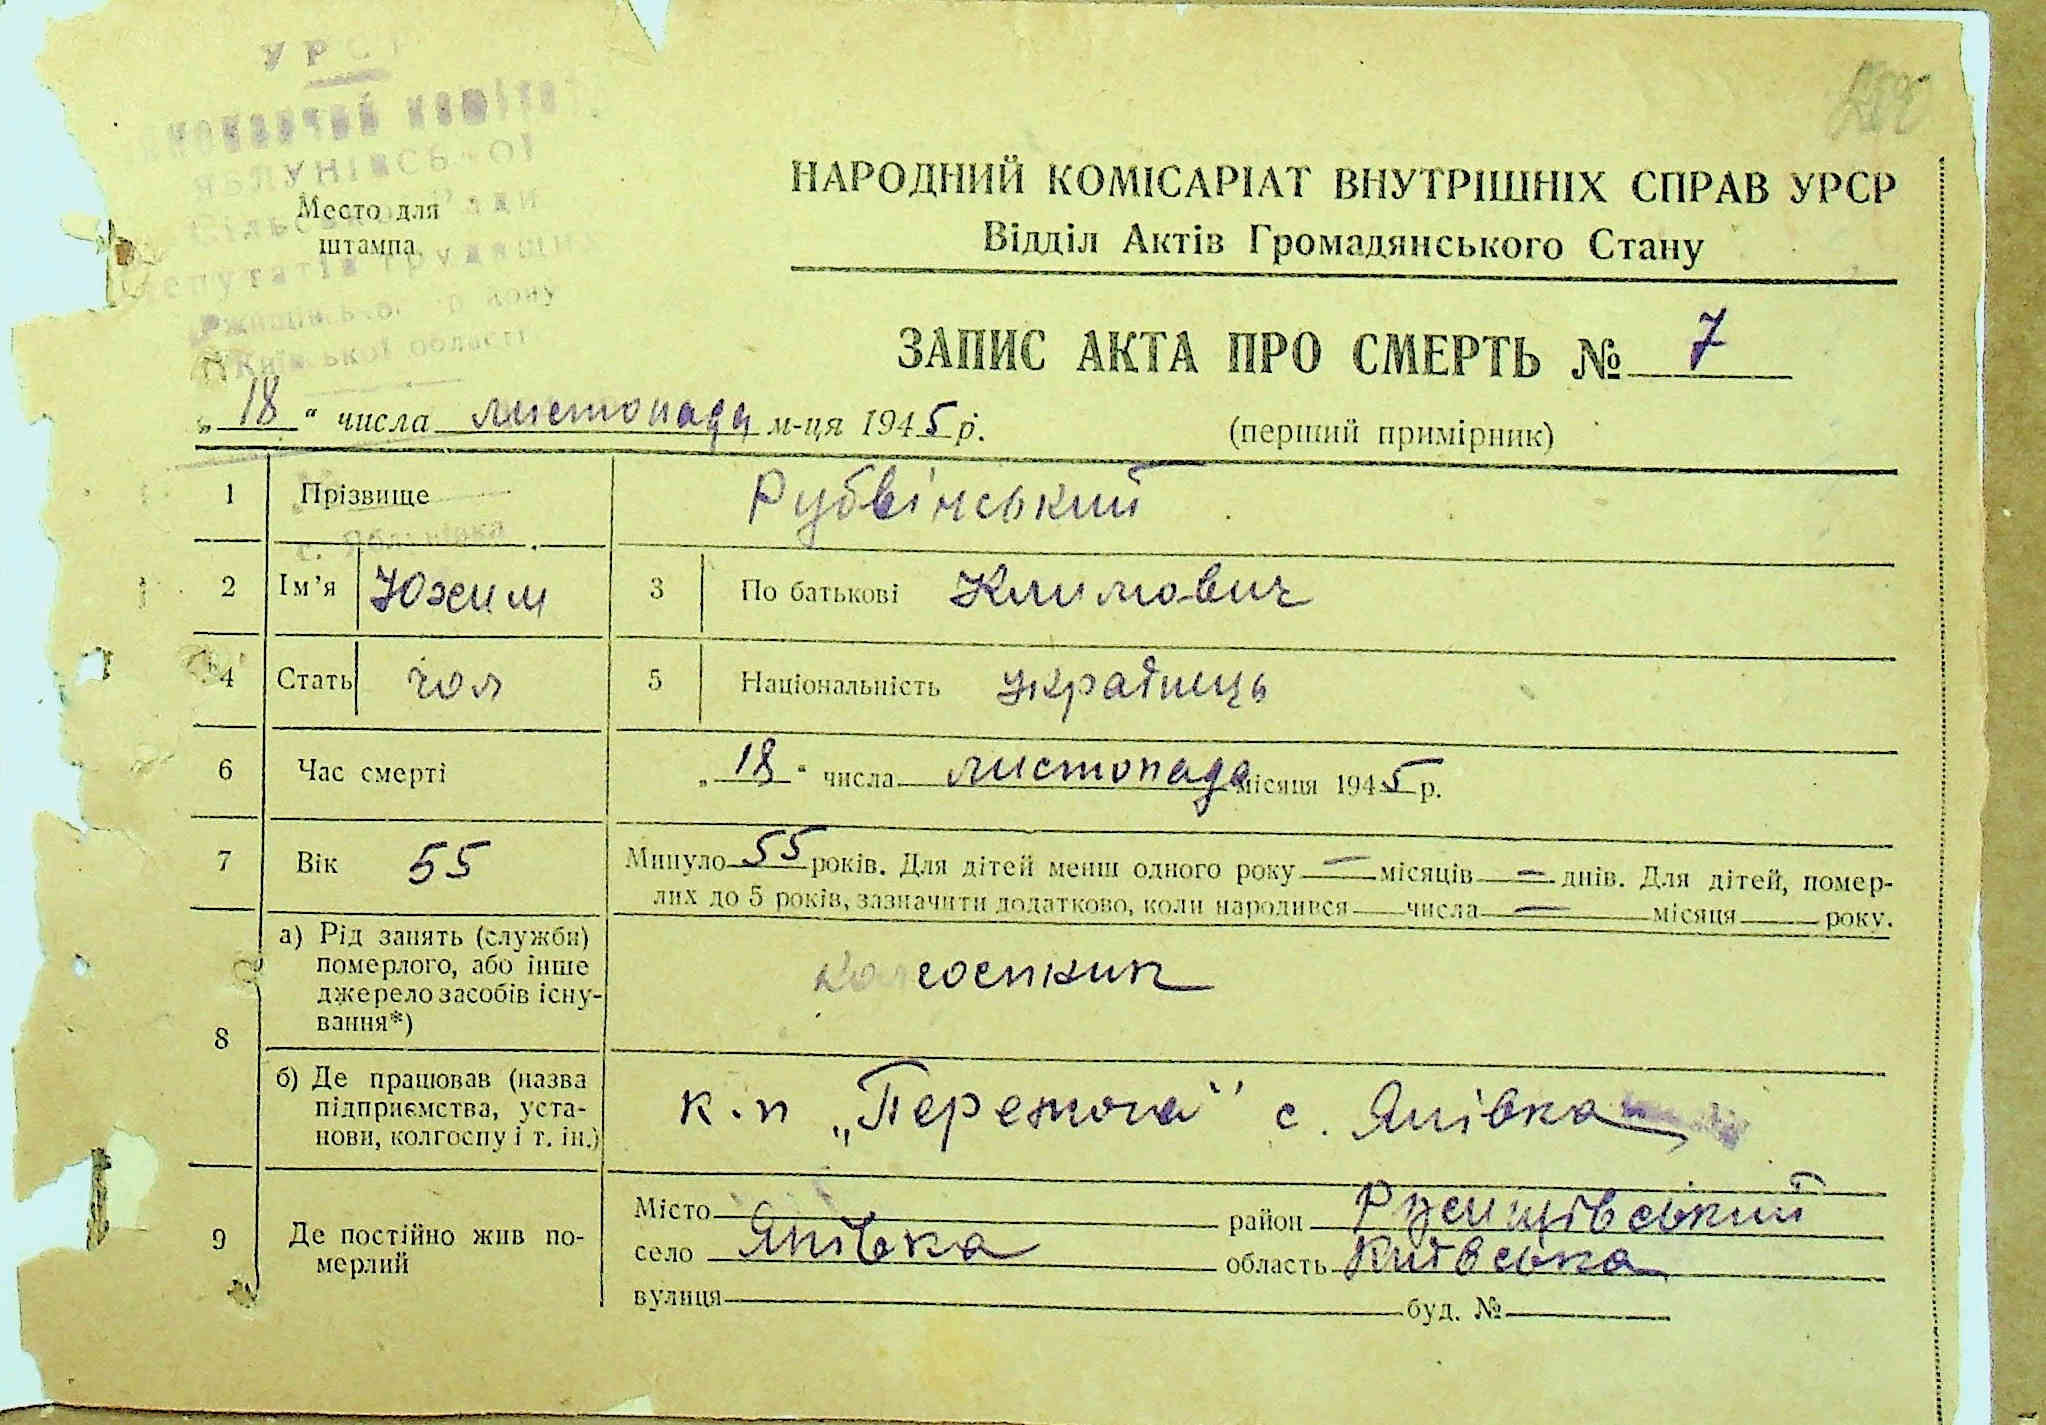 УРСР
Виконавчий комітет
ЯБЛУНІВСЬКОЇ
Сільської Ради
депутатів трудящих
Ржищівського району
Київської області
Место для
штампа
НАРОДНИЙ КОМІСАРІАТ ВНУТРІШНІХ СПРАВ УРСР
Відділ Актів Громадянського Стану
ЗАПИС АКТА ПРО СМЕРТЬ № 7
„18“ числа листопада м-ця 1945 р.
(перший примірник)
1 Прізвище Рубвінський
с. Яблунівка
2 Ім’я Юхим 3 По батькові Климович
4 Стать чол 5 Національність українець
6 Час смерті „18“ числа листопада місяця 1945 р.
7 Вік 55 Минуло 55 років. Для дітей менш одного року — місяців — днів. Для дітей, помер-
лих до 5 років, зазначити додатково, коли народився числа — місяця року.
8 а) Рід занять (служби)
померлого, або інше
джерело засобів існу-
вання*)
колгоспник
б) Де працював (назва
підприємства, уста-
нови, колгоспу і т. ін.)
к-п „Перемога" с. Янівка
9 Де постійно жив по-
мерлий
Місто район
село Янівка область Київська
вулиця буд. №